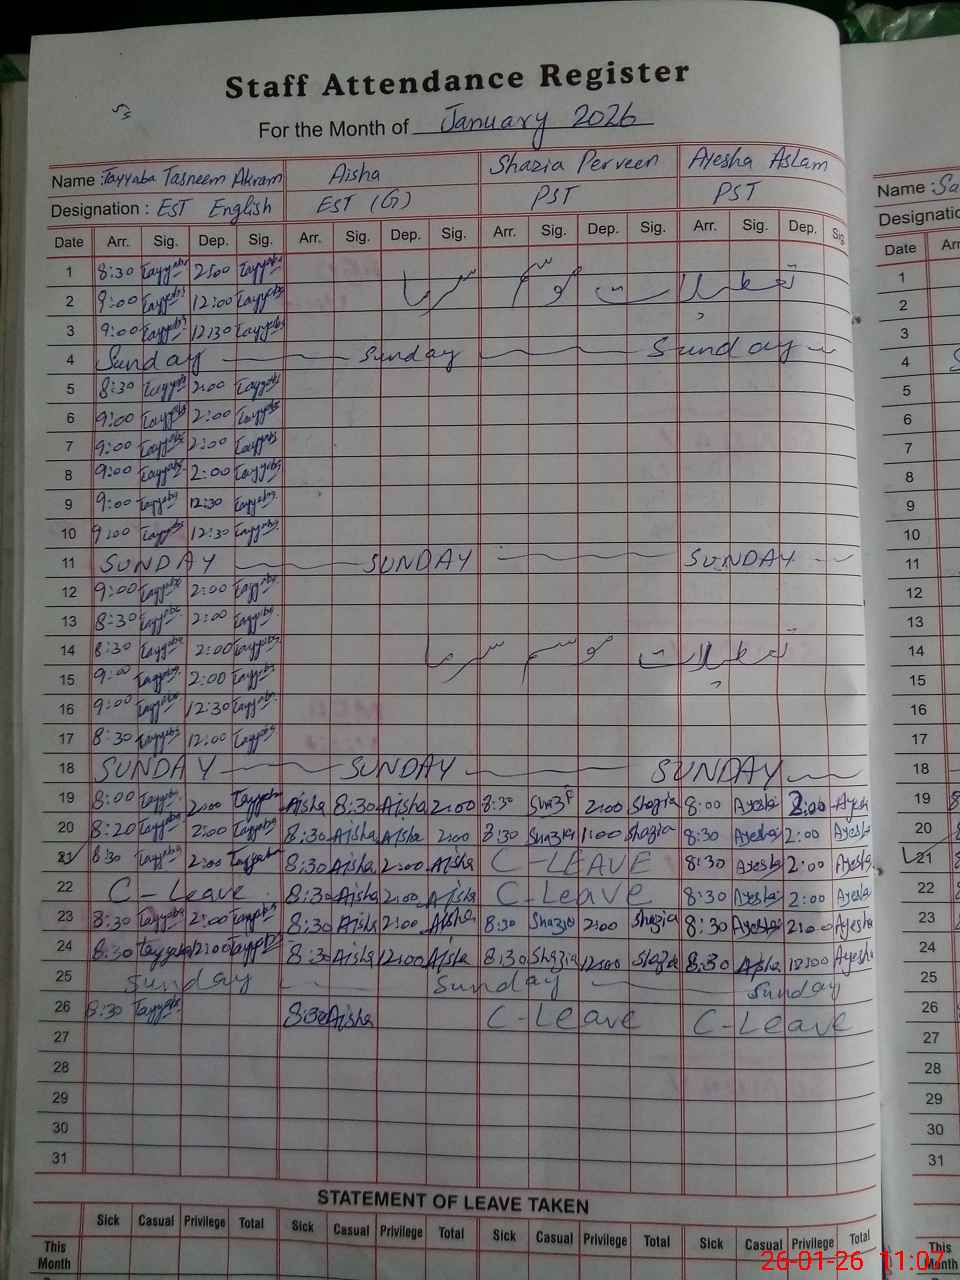 Staff Attendance Register
For the Month of January 2026
Name : Tayyaba Tasneem Akram Aisha Shazia Perveen Ayesha Aslam Name : Sa
Designation : EST English EST (G) PST PST Designatio
Date Arr. Sig. Dep. Sig. Arr. Sig. Dep. Sig. Arr. Sig. Dep. Sig. Arr. Sig. Dep. Sig. Date Arr
1 8:30 Tayyaba 2:00 Tayyaba 1
تعطیلات موسم سرما
2 9:00 Tayyaba 12:00 Tayyaba 2
3 9:00 Tayyaba 12:30 Tayyaba 3
4 Sunday Sunday Sunday 4
5 8:30 Tayyaba 2:00 Tayyaba 5
6 9:00 Tayyaba 2:00 Tayyaba 6
7 9:00 Tayyaba 2:00 Tayyaba 7
8 9:00 Tayyaba 2:00 Tayyaba 8
9 9:00 Tayyaba 12:30 Tayyaba 9
10 9:00 Tayyaba 12:30 Tayyaba 10
11 SUNDAY SUNDAY SUNDAY 11
12 9:00 Tayyaba 2:00 Tayyaba 12
13 8:30 Tayyaba 2:00 Tayyaba 13
14 8:30 Tayyaba 2:00 Tayyaba تعطیلات موسم سرما 14
15 9:00 Tayyaba 2:00 Tayyaba 15
16 9:00 Tayyaba 12:30 Tayyaba 16
17 8:30 Tayyaba 12:00 Tayyaba 17
18 SUNDAY SUNDAY SUNDAY 18
19 8:00 Tayyaba 2:00 Tayyaba Aisha 8:30 Aisha 2:00 8:30 2:00 Shazia 8:00 Ayesha 2:00 Ayesha 19
20 8:20 Tayyaba 2:00 Tayyaba 8:30 Aisha Aisha 2:00 8:30 Shazia 1:00 Shazia 8:30 Ayesha 2:00 Ayesha 20
21 8:30 Tayyaba 2:00 Tayyaba 8:30 Aisha 2:00 Aisha C-LEAVE 8:30 Ayesha 2:00 Ayesha 21
22 C-Leave 8:30 Aisha 2:00 Aisha C-Leave 8:30 Ayesha 2:00 Ayesha 22
23 8:30 Tayyaba 2:00 Tayyaba 8:30 Aisha 2:00 Aisha 8:30 Shazia 2:00 Shazia 8:30 Ayesha 2:00 Ayesha 23
24 8:30 Tayyaba 12:00 Tayyaba 8:30 Aisha 12:00 Aisha 8:30 Shazia 12:00 Shazia 8:30 12:00 Ayesha 24
25 Sunday Sunday Sunday 25
26 8:30 Tayyaba 8:30 Aisha C-Leave C-Leave 26
27 27
28 28
29 29
30 30
31 31
STATEMENT OF LEAVE TAKEN
Sick Casual Privilege Total Sick Casual Privilege Total Sick Casual Privilege Total Sick Casual Privilege Total
This Month This Month
26-01-26 11:07